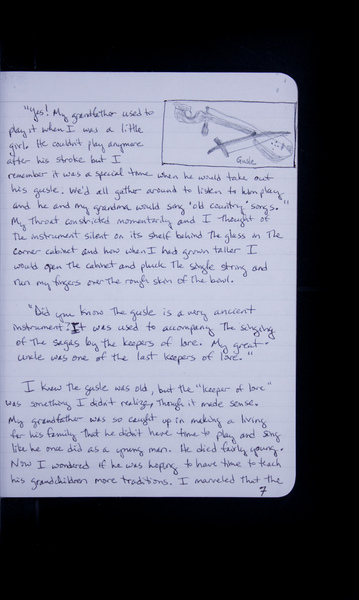 "Yes! My grandfather used to
play it when I was a little
girl. He couldn't play anymore
after his stroke but I
Gusle
remember it was a special time when he would take out
his gusle. We'd all gather around to listen to him play
and he and my grandma would sing 'old country' songs."
My Throat constricted momentarily and I Thought of
The instrument silent on its shelf behind The glass in The
corner cabinet and how when I had grown taller I
would open The cabinet and pluck The single string and
run my fingers over The rough skin of The bowl.
"Did you know The gusle is a very ancient
instrument? It was used to accompany The singing
of The sagas by the keepers of lore. My great-
uncle was one of The last keepers of lore."
I knew The gusle was old, but the "keeper of lore"
was something I didn't realize, Though it made sense.
My grandfather was so caught up in making a living
for his family That he didn't have time to play and sing
like he once did as a young man. He died fairly young.
Now I wondered if he was hoping to have time to teach
his grandchildren more traditions. I marveled That The
7